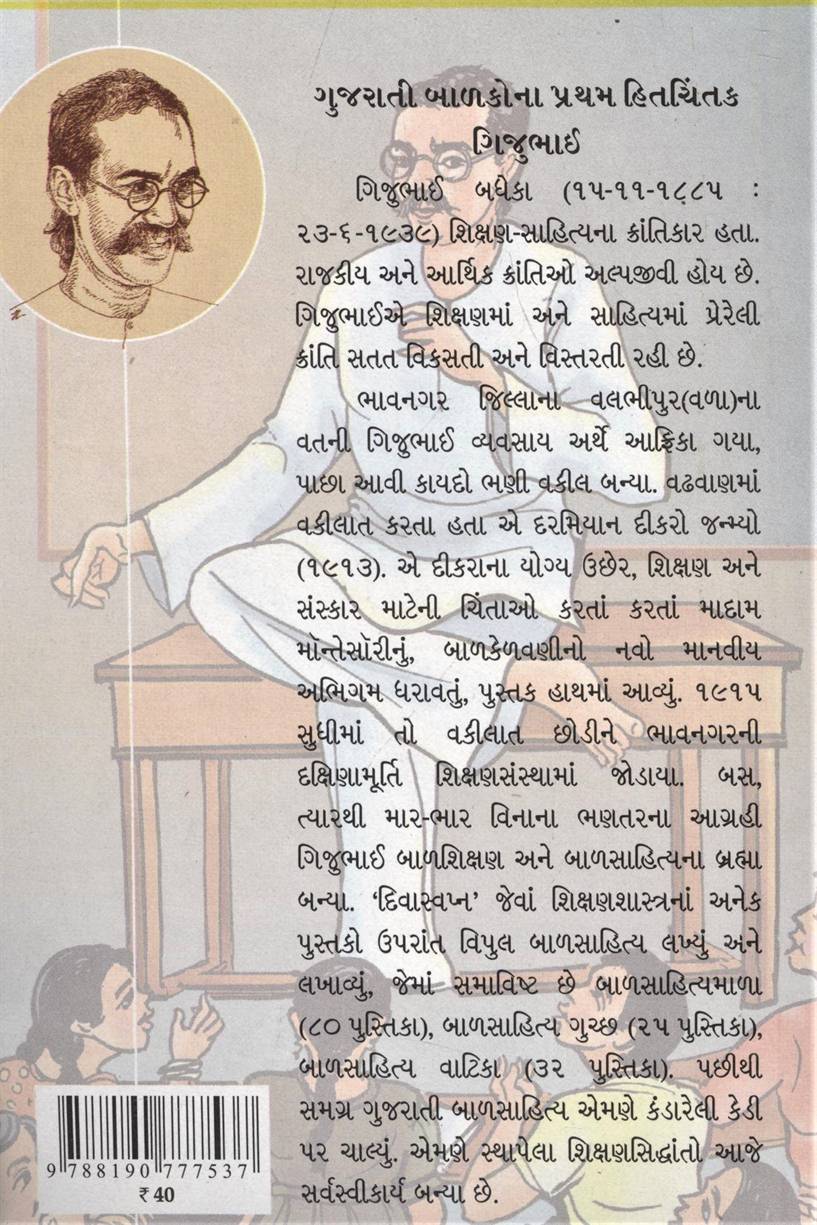 ગુજરાતી બાળકોના પ્રથમ હિતચિંતક
ગિજુભાઈ
ગિજુભાઈ બધેકા (૧૫-૧૧-૧૮૮૫ :
૨૩-૬-૧૯૩૯) શિક્ષણ-સાહિત્યના ક્રાંતિકાર હતા.
રાજકીય અને આર્થિક ક્રાંતિઓ અલ્પજીવી હોય છે.
ગિજુભાઈએ શિક્ષણમાં અને સાહિત્યમાં પ્રેરેલી
ક્રાંતિ સતત વિકસતી અને વિસ્તરતી રહી છે.
ભાવનગર જિલ્લાના વલભીપુર(વળા)ના
વતની ગિજુભાઈ વ્યવસાય અર્થે આફ્રિકા ગયા,
પાછા આવી કાયદો ભણી વકીલ બન્યા. વઢવાણમાં
વકીલાત કરતા હતા એ દરમિયાન દીકરો જન્મ્યો
(૧૯૧૩). એ દીકરાના યોગ્ય ઉછેર, શિક્ષણ અને
સંસ્કાર માટેની ચિંતાઓ કરતાં કરતાં માદામ
મૉન્તેસૉરીનું, બાળકેળવણીનો નવો માનવીય
અભિગમ ધરાવતું, પુસ્તક હાથમાં આવ્યું. ૧૯૧૫
સુધીમાં તો વકીલાત છોડીને ભાવનગરની
દક્ષિણામૂર્તિ શિક્ષણસંસ્થામાં જોડાયા. બસ,
ત્યારથી માર-ભાર વિનાના ભણતરના આગ્રહી
ગિજુભાઈ બાળશિક્ષણ અને બાળસાહિત્યના બ્રહ્મા
બન્યા. ‘દિવાસ્વપ્ન’ જેવાં શિક્ષણશાસ્ત્રનાં અનેક
પુસ્તકો ઉપરાંત વિપુલ બાળસાહિત્ય લખ્યું અને
લખાવ્યું, જેમાં સમાવિષ્ટ છે બાળસાહિત્યમાળા
(૮૦ પુસ્તિકા), બાળસાહિત્ય ગુચ્છ (૨૫ પુસ્તિકા),
બાળસાહિત્ય વાટિકા (૩૨ પુસ્તિકા). પછીથી
સમગ્ર ગુજરાતી બાળસાહિત્ય એમણે કંડારેલી કેડી
પર ચાલ્યું. એમણે સ્થાપેલા શિક્ષણસિદ્ધાંતો આજે
સર્વસ્વીકાર્ય બન્યા છે.
9 788190 777537
₹ 40